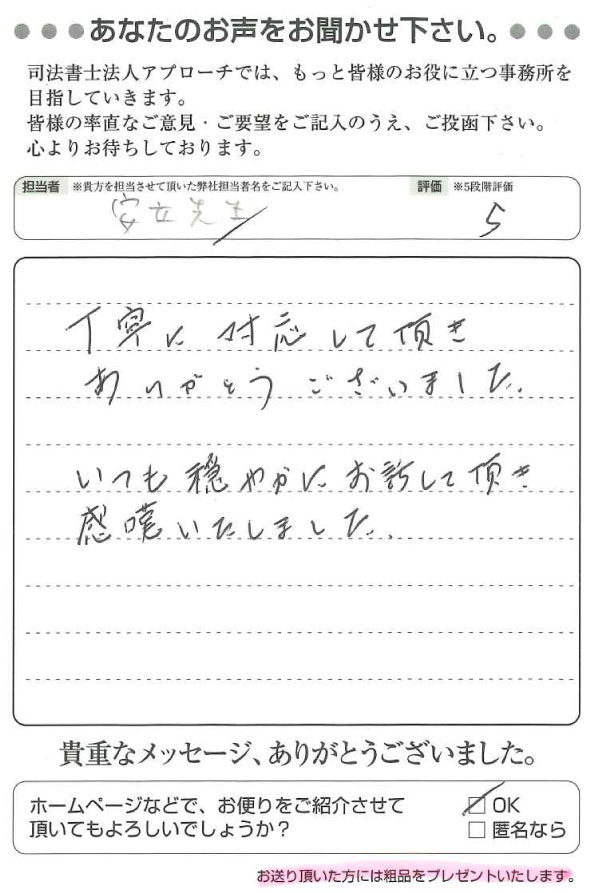 あなたのお声をお聞かせ下さい。
司法書士法人アプローチでは、もっと皆様のお役に立つ事務所を
目指していきます。
皆様の率直なご意見・ご要望をご記入のうえ、ご投函下さい。
心よりお待ちしております。
担当者 ※貴方を担当させて頂いた弊社担当者名をご記入下さい。 評価 ※5段階評価
安立先生 5
丁寧に対応して頂き
ありがとうございました。
いつも穏やかにお話して頂き
感嘆いたしました。
貴重なメッセージ、ありがとうございました。
ホームページなどで、お便りをご紹介させて
頂いてもよろしいでしょうか?
OK
匿名なら
お送り頂いた方には粗品をプレゼントいたします。